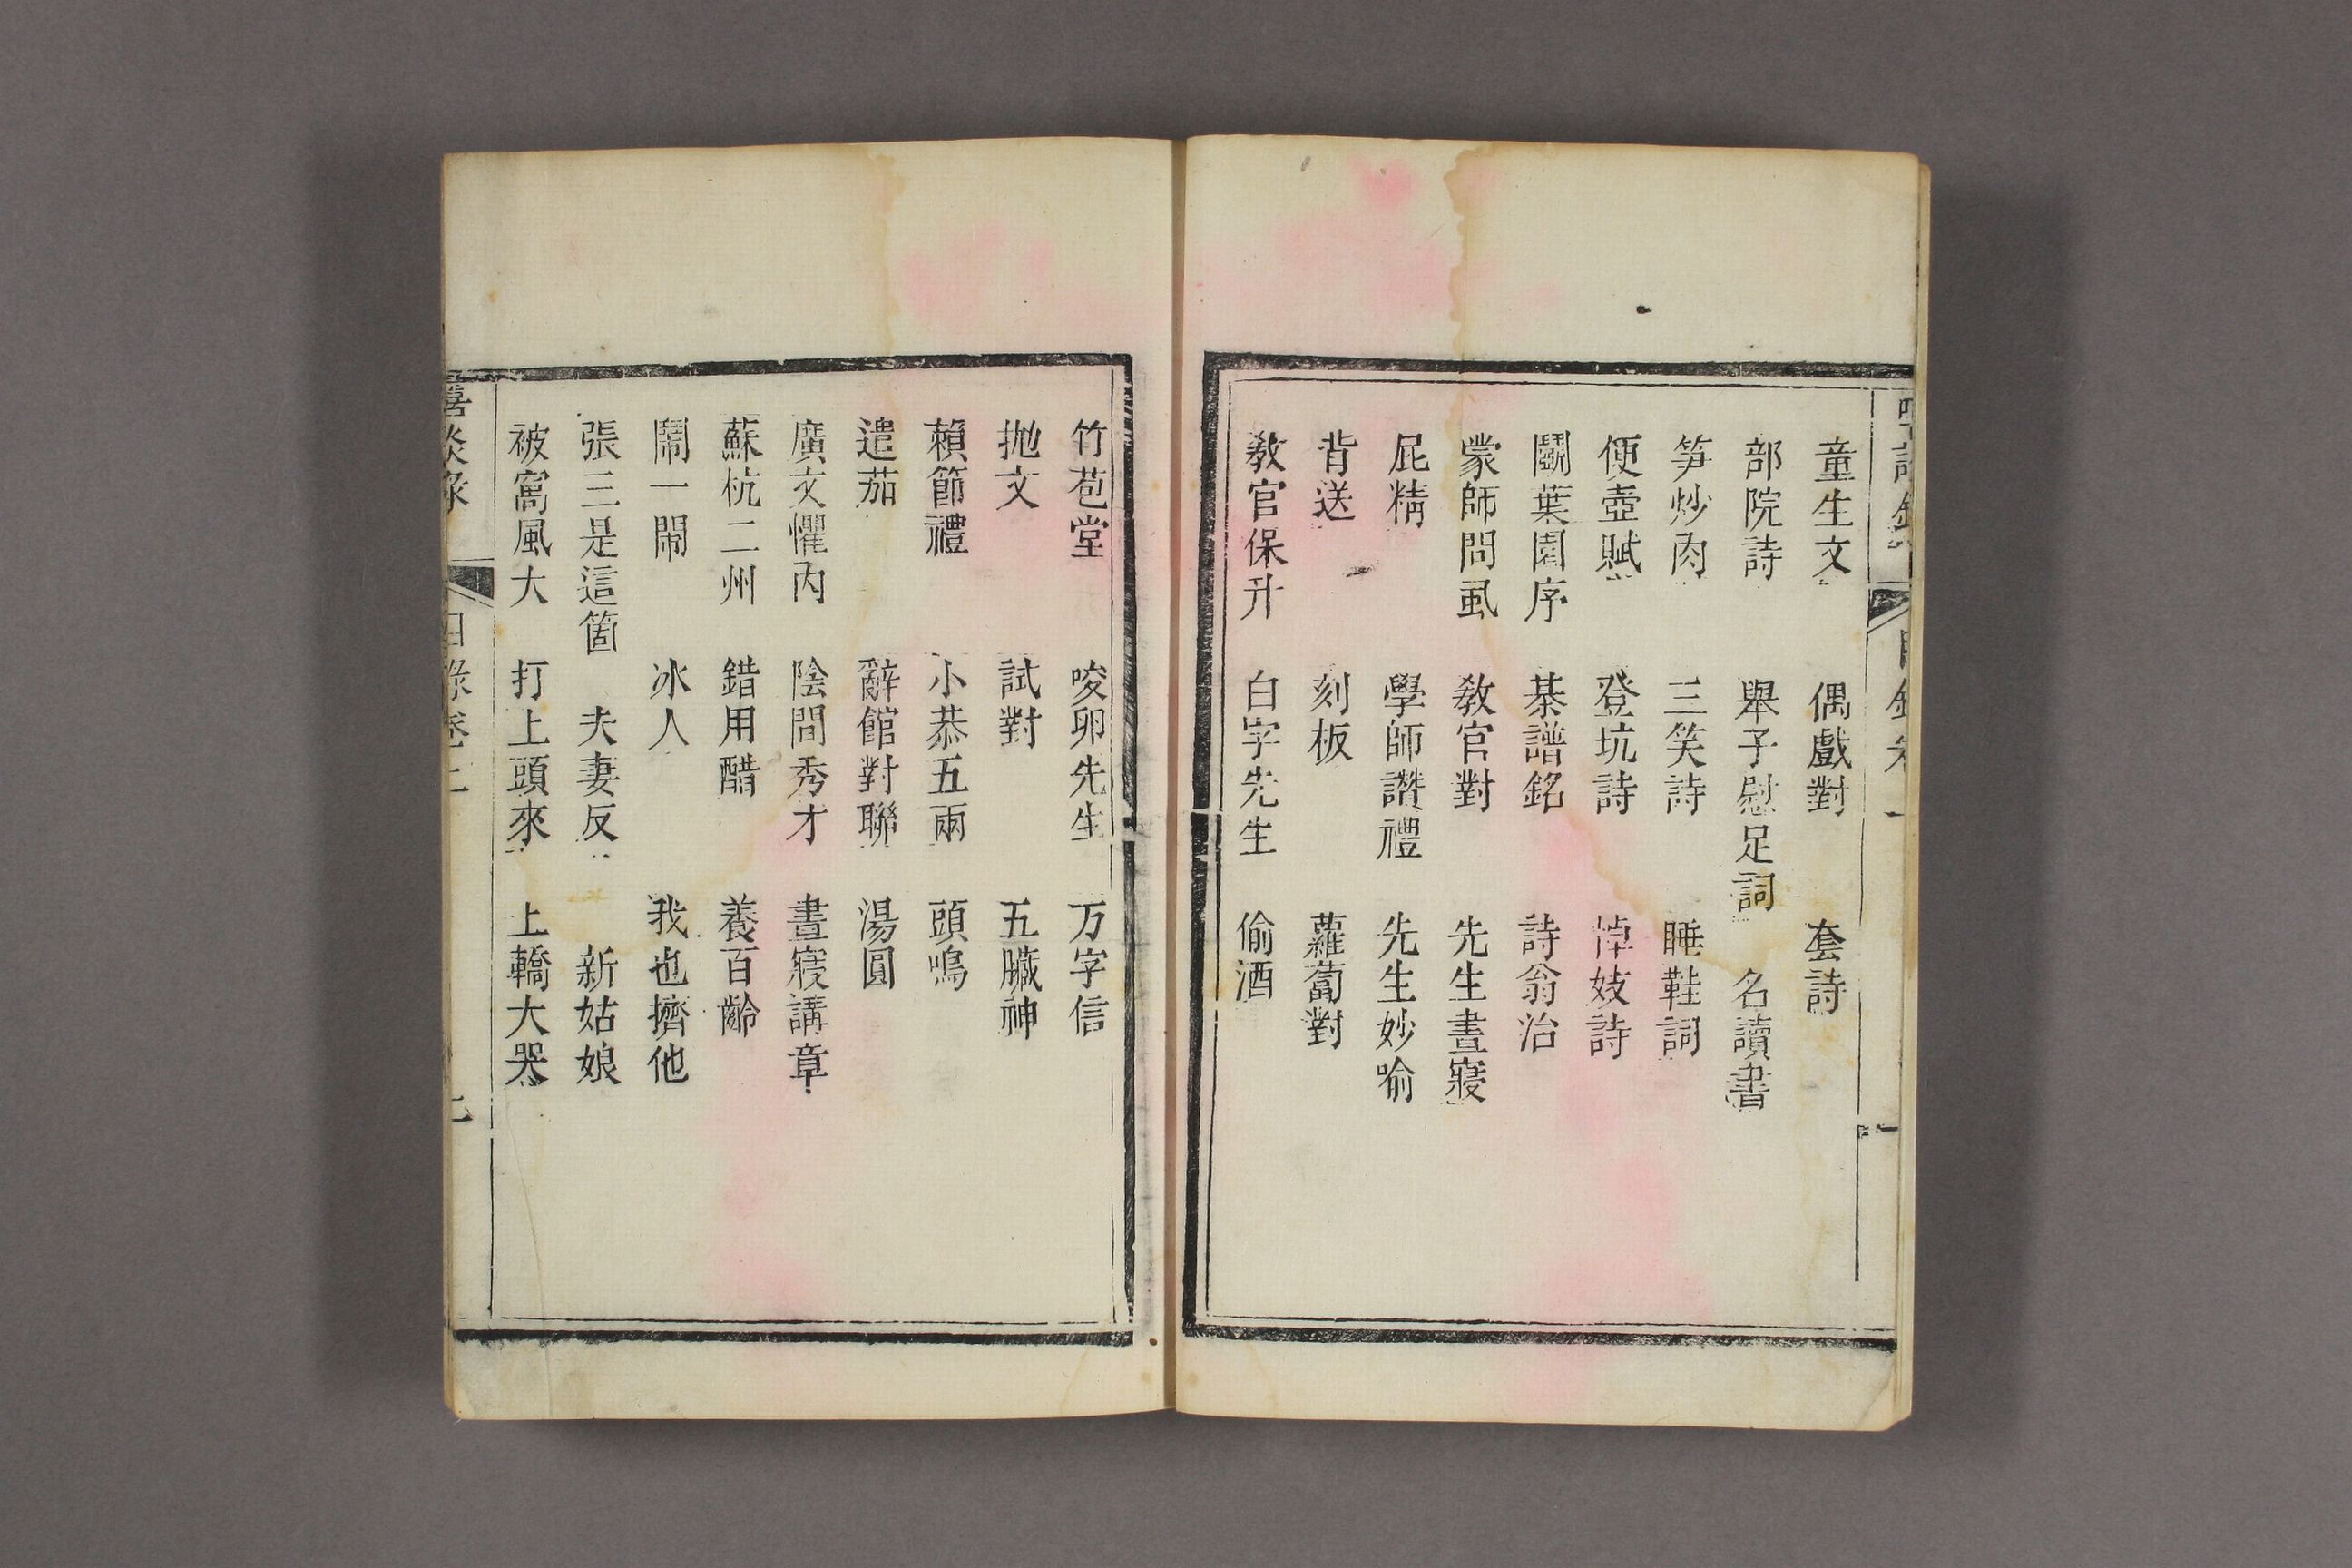 童生文 偶戲對 套詩
部院詩 舉子慰足詞 名讀書
笋炒肉 三笑詩 睡鞋詞
便壺賦 登坑詩 悼妓詩
鬭葉園序 棊譜銘 詩翁治
蒙師問虱 敎官對 先生晝寢
屁精 學師讚禮 先生妙喻
背送 刻板 蘿蔔對
敎官保升 白字先生 偷酒
竹苞堂 唆卵先生 万字信
抛文 試對 五臟神
賴節禮 小恭五兩 頭鳴
遣茄 辭館對聯 湯圓
廣文懼內 陰間秀才 晝寢講章
蘇杭二州 錯用醋 養百齡
鬧一鬧 冰人 我也擠他
張三是這箇 夫妻反 新姑娘
被窩風大 打上頭來 上轎大哭
嘻談錄 目錄卷上